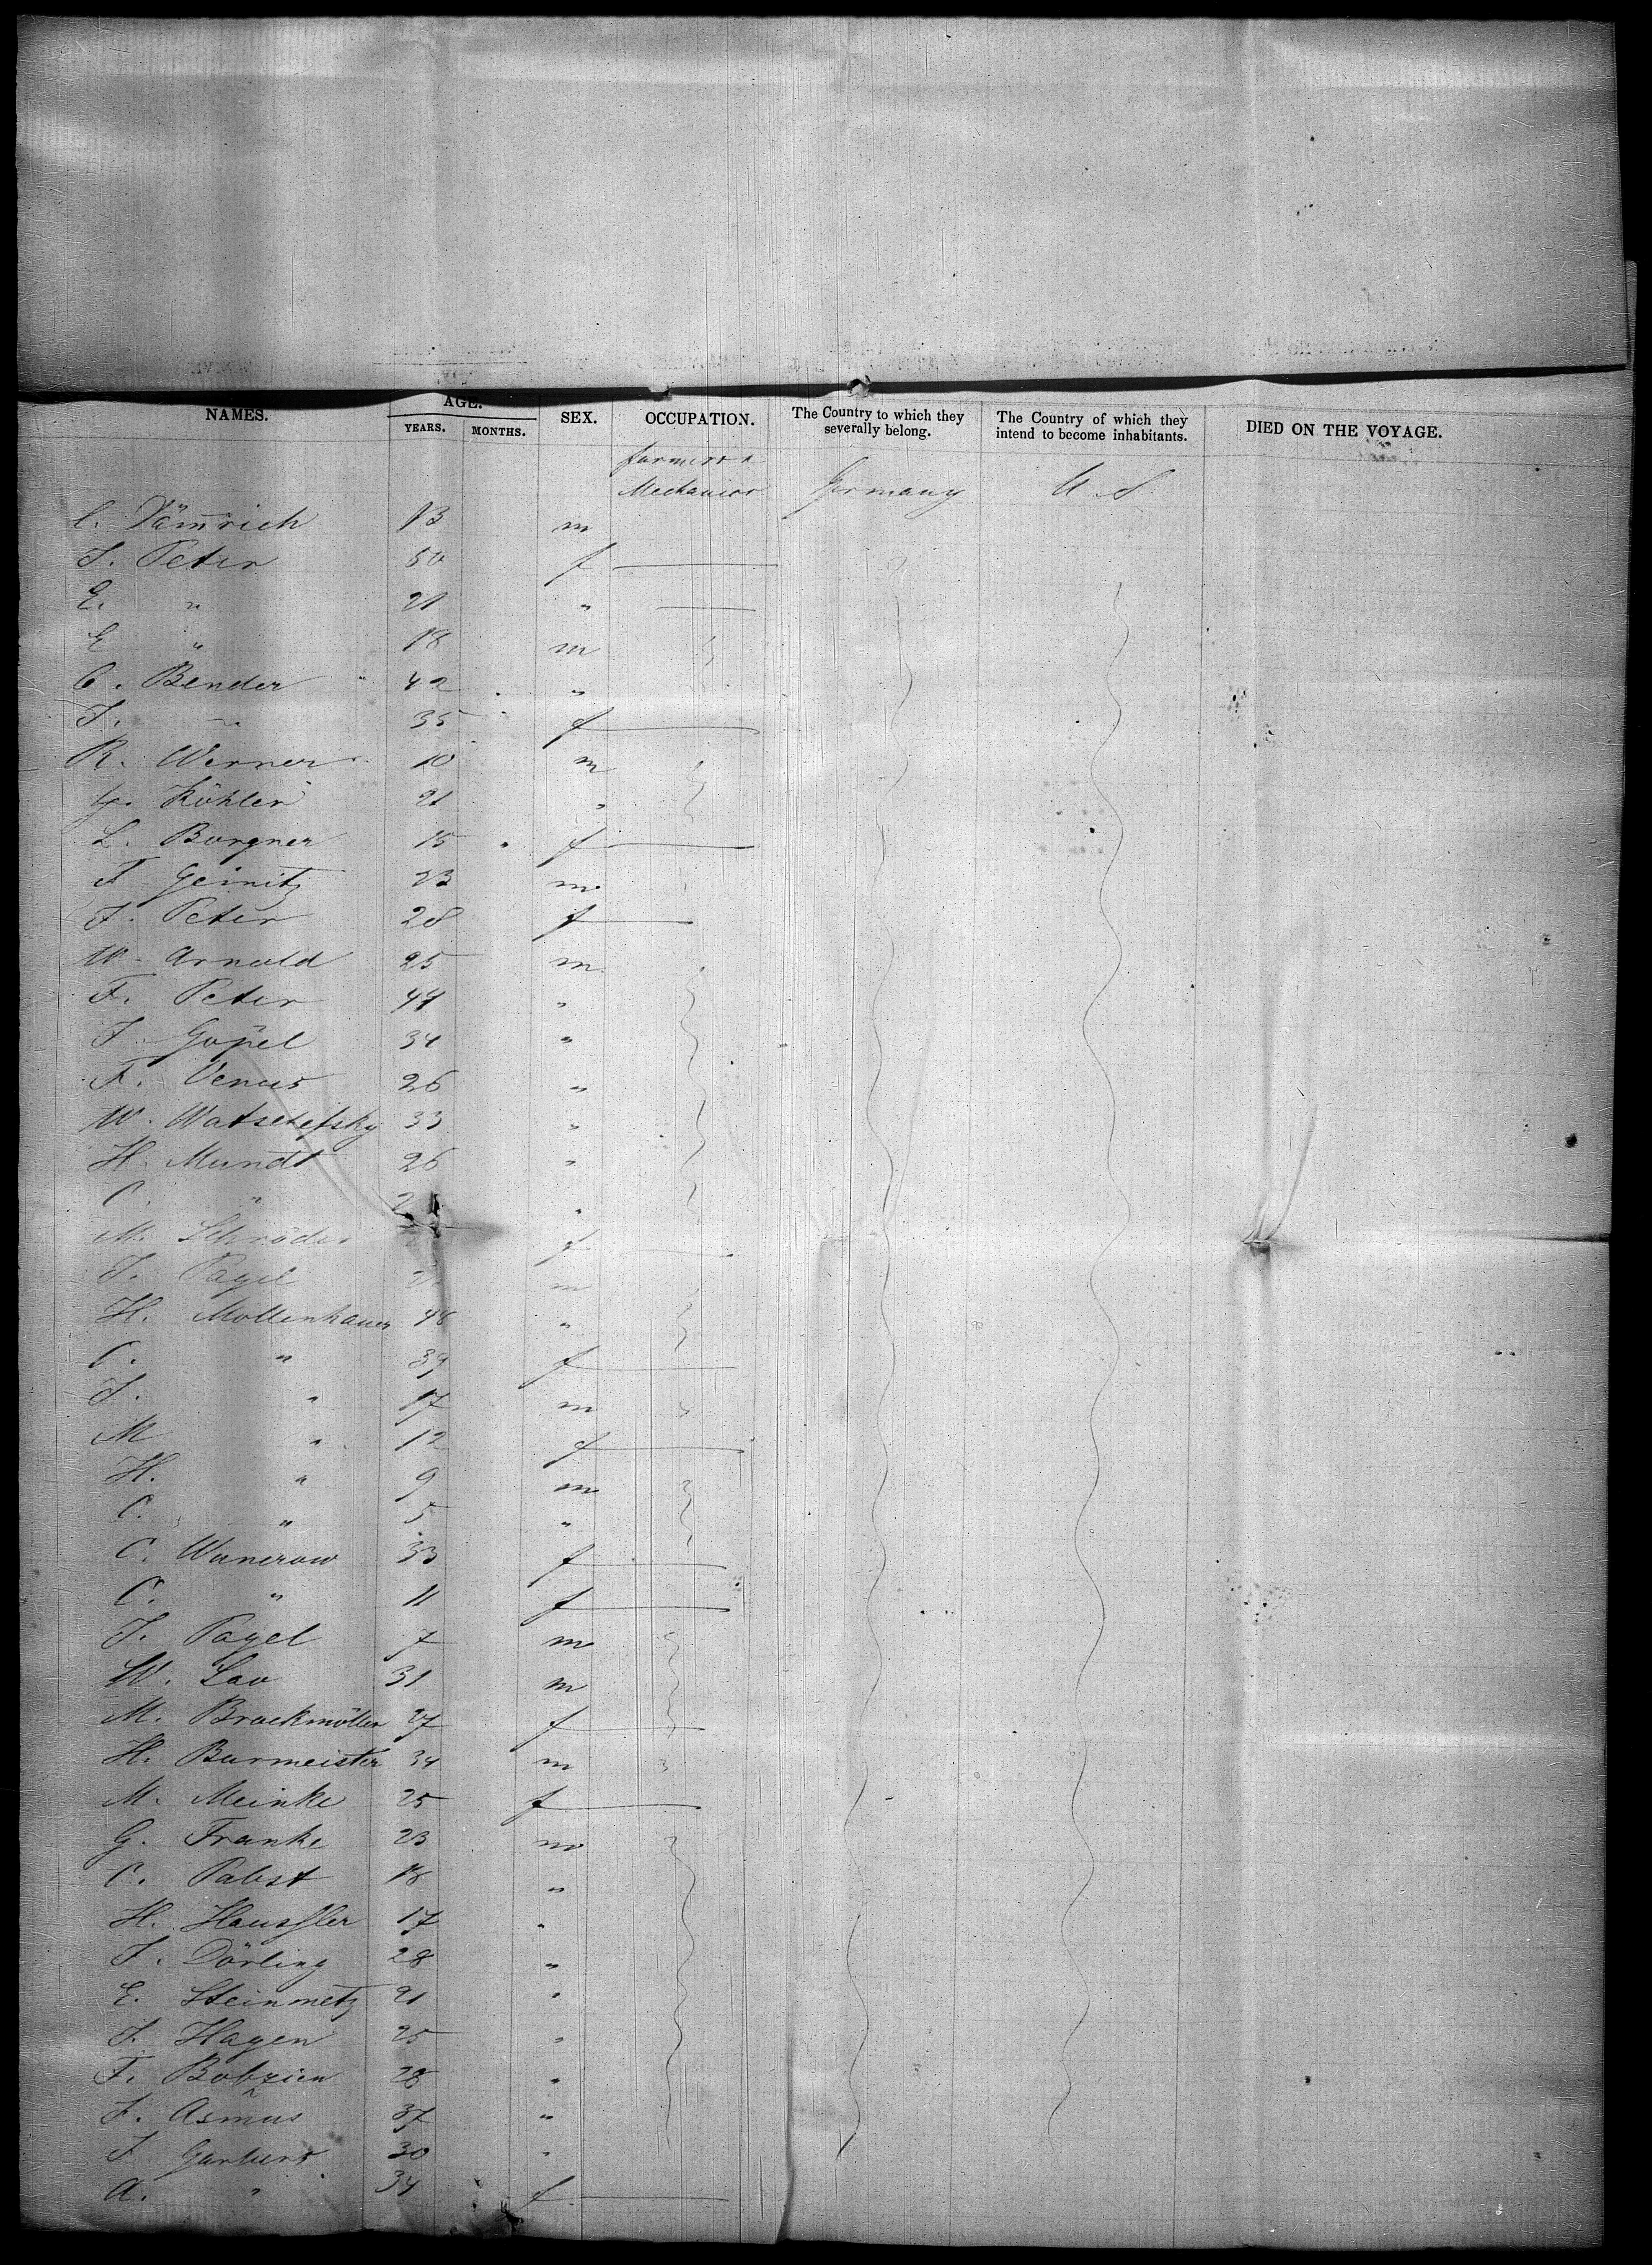 NAMES. AGE. YEARS. MONTHS. SEX. OCCUPATION. The Country to which they severally belong. The Country of which they intend to become inhabitants. DIED ON THE VOYAGE.
farmers &
Mechanics Germany U. S.
C. Däm̄rich 13 m
J. Peter 50 f
E. " 21 "
E " 18 m
C. Bender 42 "
J. " 35 f
R. Werner 10 m
G. Köhler 21 "
L. Borgner 15 f
F. Geinitz 23 m
J. Peter 28 f
W. Arnold 25 m
F. Peter 44 "
J. Göpel 34 "
F. Venus 26 "
W. 33 "
H. Mundt 26 "
C. " "
M. Schröder f
J. Pagel m
H. Mollenhauer 48 "
C. " 39 f
J. " 17 m
M " 12 f
H. " 9 m
C. " 5 "
C. Wanerow 33 f
C. " 11 f
J. Pagel 7 m
W. Lau 31 m
M. Brockmöller 27 f
H. Burmeister 34 m
M. Meinke 25 f
G. Franke 23 m
C. Pabst 18 "
H. Haussler 17 "
J. Dörling 28 "
E. Steinmetz 21 "
J. Hagen 25 "
F. Bobzien 28 "
J. Asmus 37 "
J. Garbers 30 "
A. " 34 f